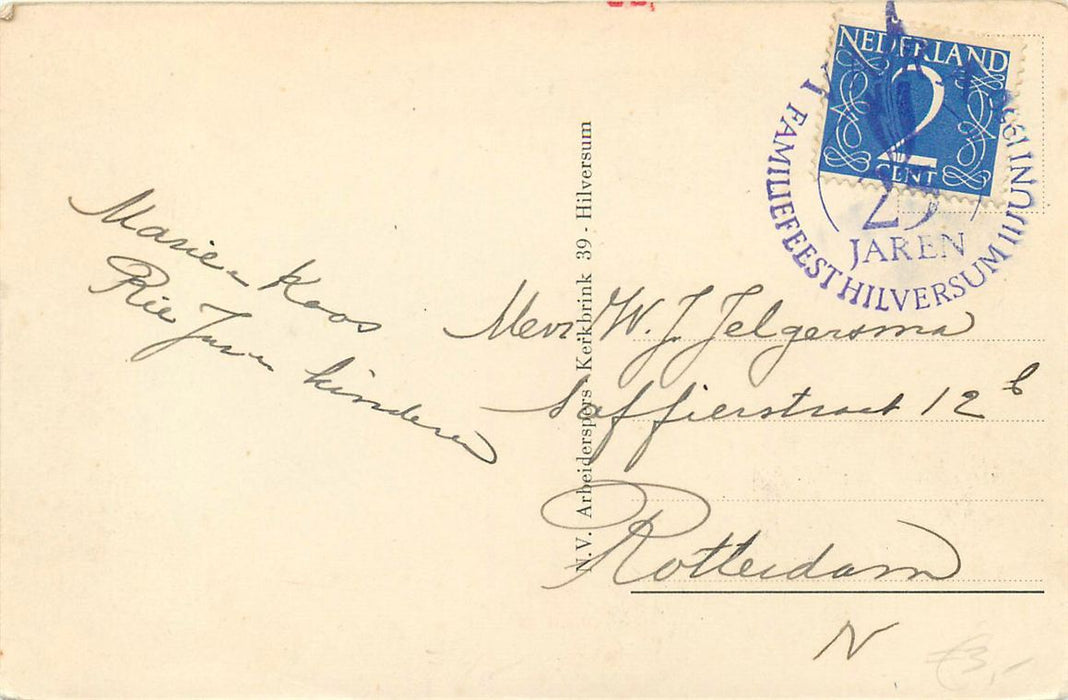 NEDERLAND
2
CENT
FAMILIEFEEST HILVERSUM
JUNI
25
JAREN
N.V. Arbeiderspers - Kerkbrink 39 - Hilversum
Marie en Koos
Rie Jan en kinderen
Mevr W. J. Jelgersma
Saffierstraat 12 b
Rotterdam
N
€3,-